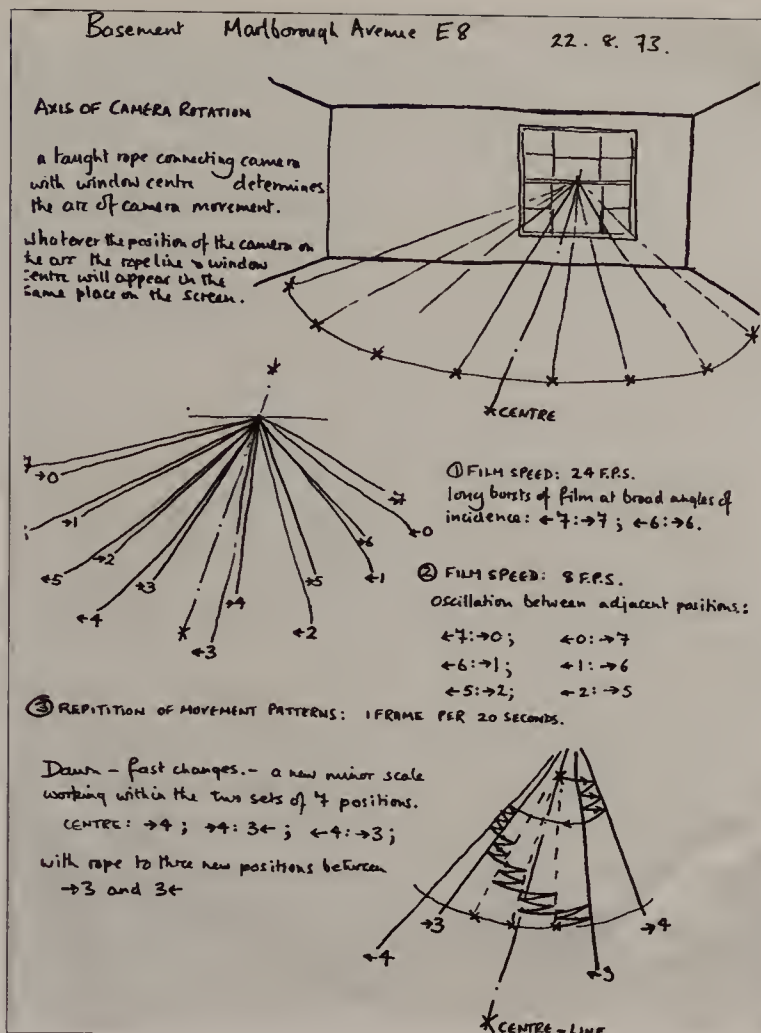 Basement Marlborough Avenue E8 22. 8. 73.
AXIS OF CAMERA ROTATION
a taught rope connecting camera
with window centre determines
the arc of camera movement.
Whatever the position of the camera on
the arc the rope line & window
centre will appear in the
same place on the screen.
*CENTRE
7
→0
→1
←5
→2
←4
→3
*
←3
→4
←2
→5
←1
→6
←0
→7
① FILM SPEED: 24 F.P.S.
long bursts of film at broad angles of
incidence: ←7:→7 ; ←6:→6.
② FILM SPEED: 8 F.P.S.
Oscillation between adjacent positions:
←7:→0; ←0:→7
←6:→1; ←1:→6
←5:→2; ←2:→5
③ REPITITION OF MOVEMENT PATTERNS: 1 FRAME PER 20 SECONDS.
Dawn – fast changes. – a new minor scale
working within the two sets of 7 positions.
CENTRE: →4 ; →4: 3← ; ←4:→3;
with rope to three new positions between
→3 and 3←
←4
→3
←3
→4
*CENTRE-LINE